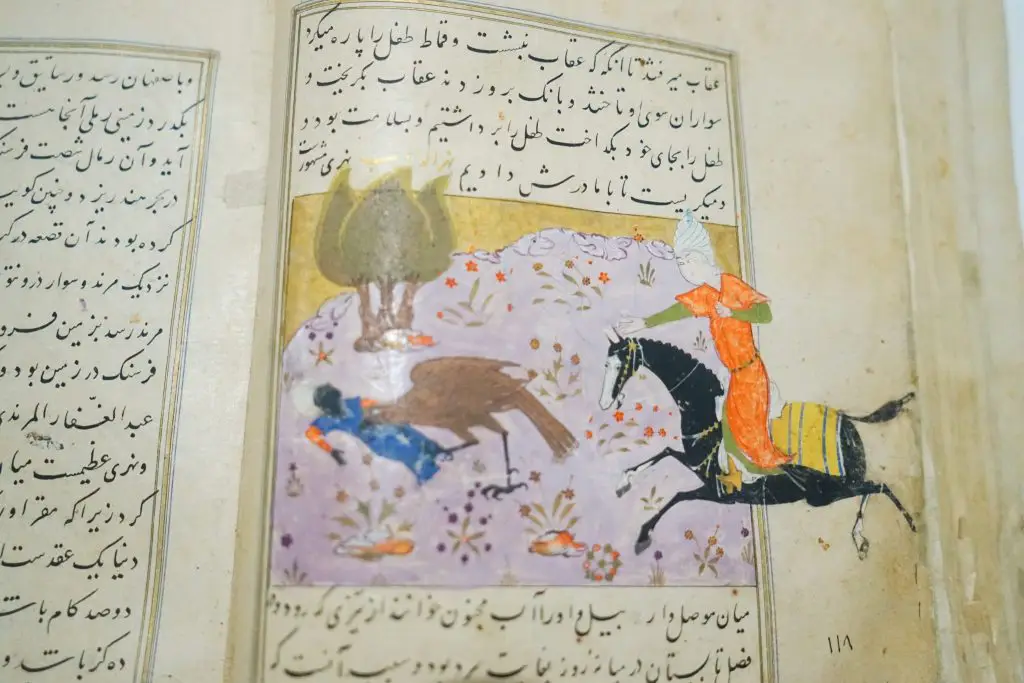 عقاب میرفتند تا آنکه که عقاب بنشست و قماط طفل را پاره میکرد
سواران سوی او تاختند و بانک بروزدند عقاب بکریخت و
طفل را بجای خود طفل را برداشتیم و بسلامت بود و
و میکریست تا با مادرش دادیم نهری
میان موصل و اربیل و اورا آب مجنون خوانند از تیزی که رود و
فصل تابستان در میانه روز بغایت سرد بود و سبب که
۱۱۸
و باصفهان رسد و
بکذرد زمینی رملی آنجا هست
آید و آن رمال شصت فرسنک
در بحر هند ریزد و چنین کویند
کرده بودند آن قصعه در
نزدیک مرند و سوار درو
مرند رسد بزمین فرو
فرسنک در زمین بود و
عبدالغفار المرندی
و نهری عظیمست میا
کرد زیرا که
دنیا یک عقدست
دو صد کام باشد
ده کز باشد و